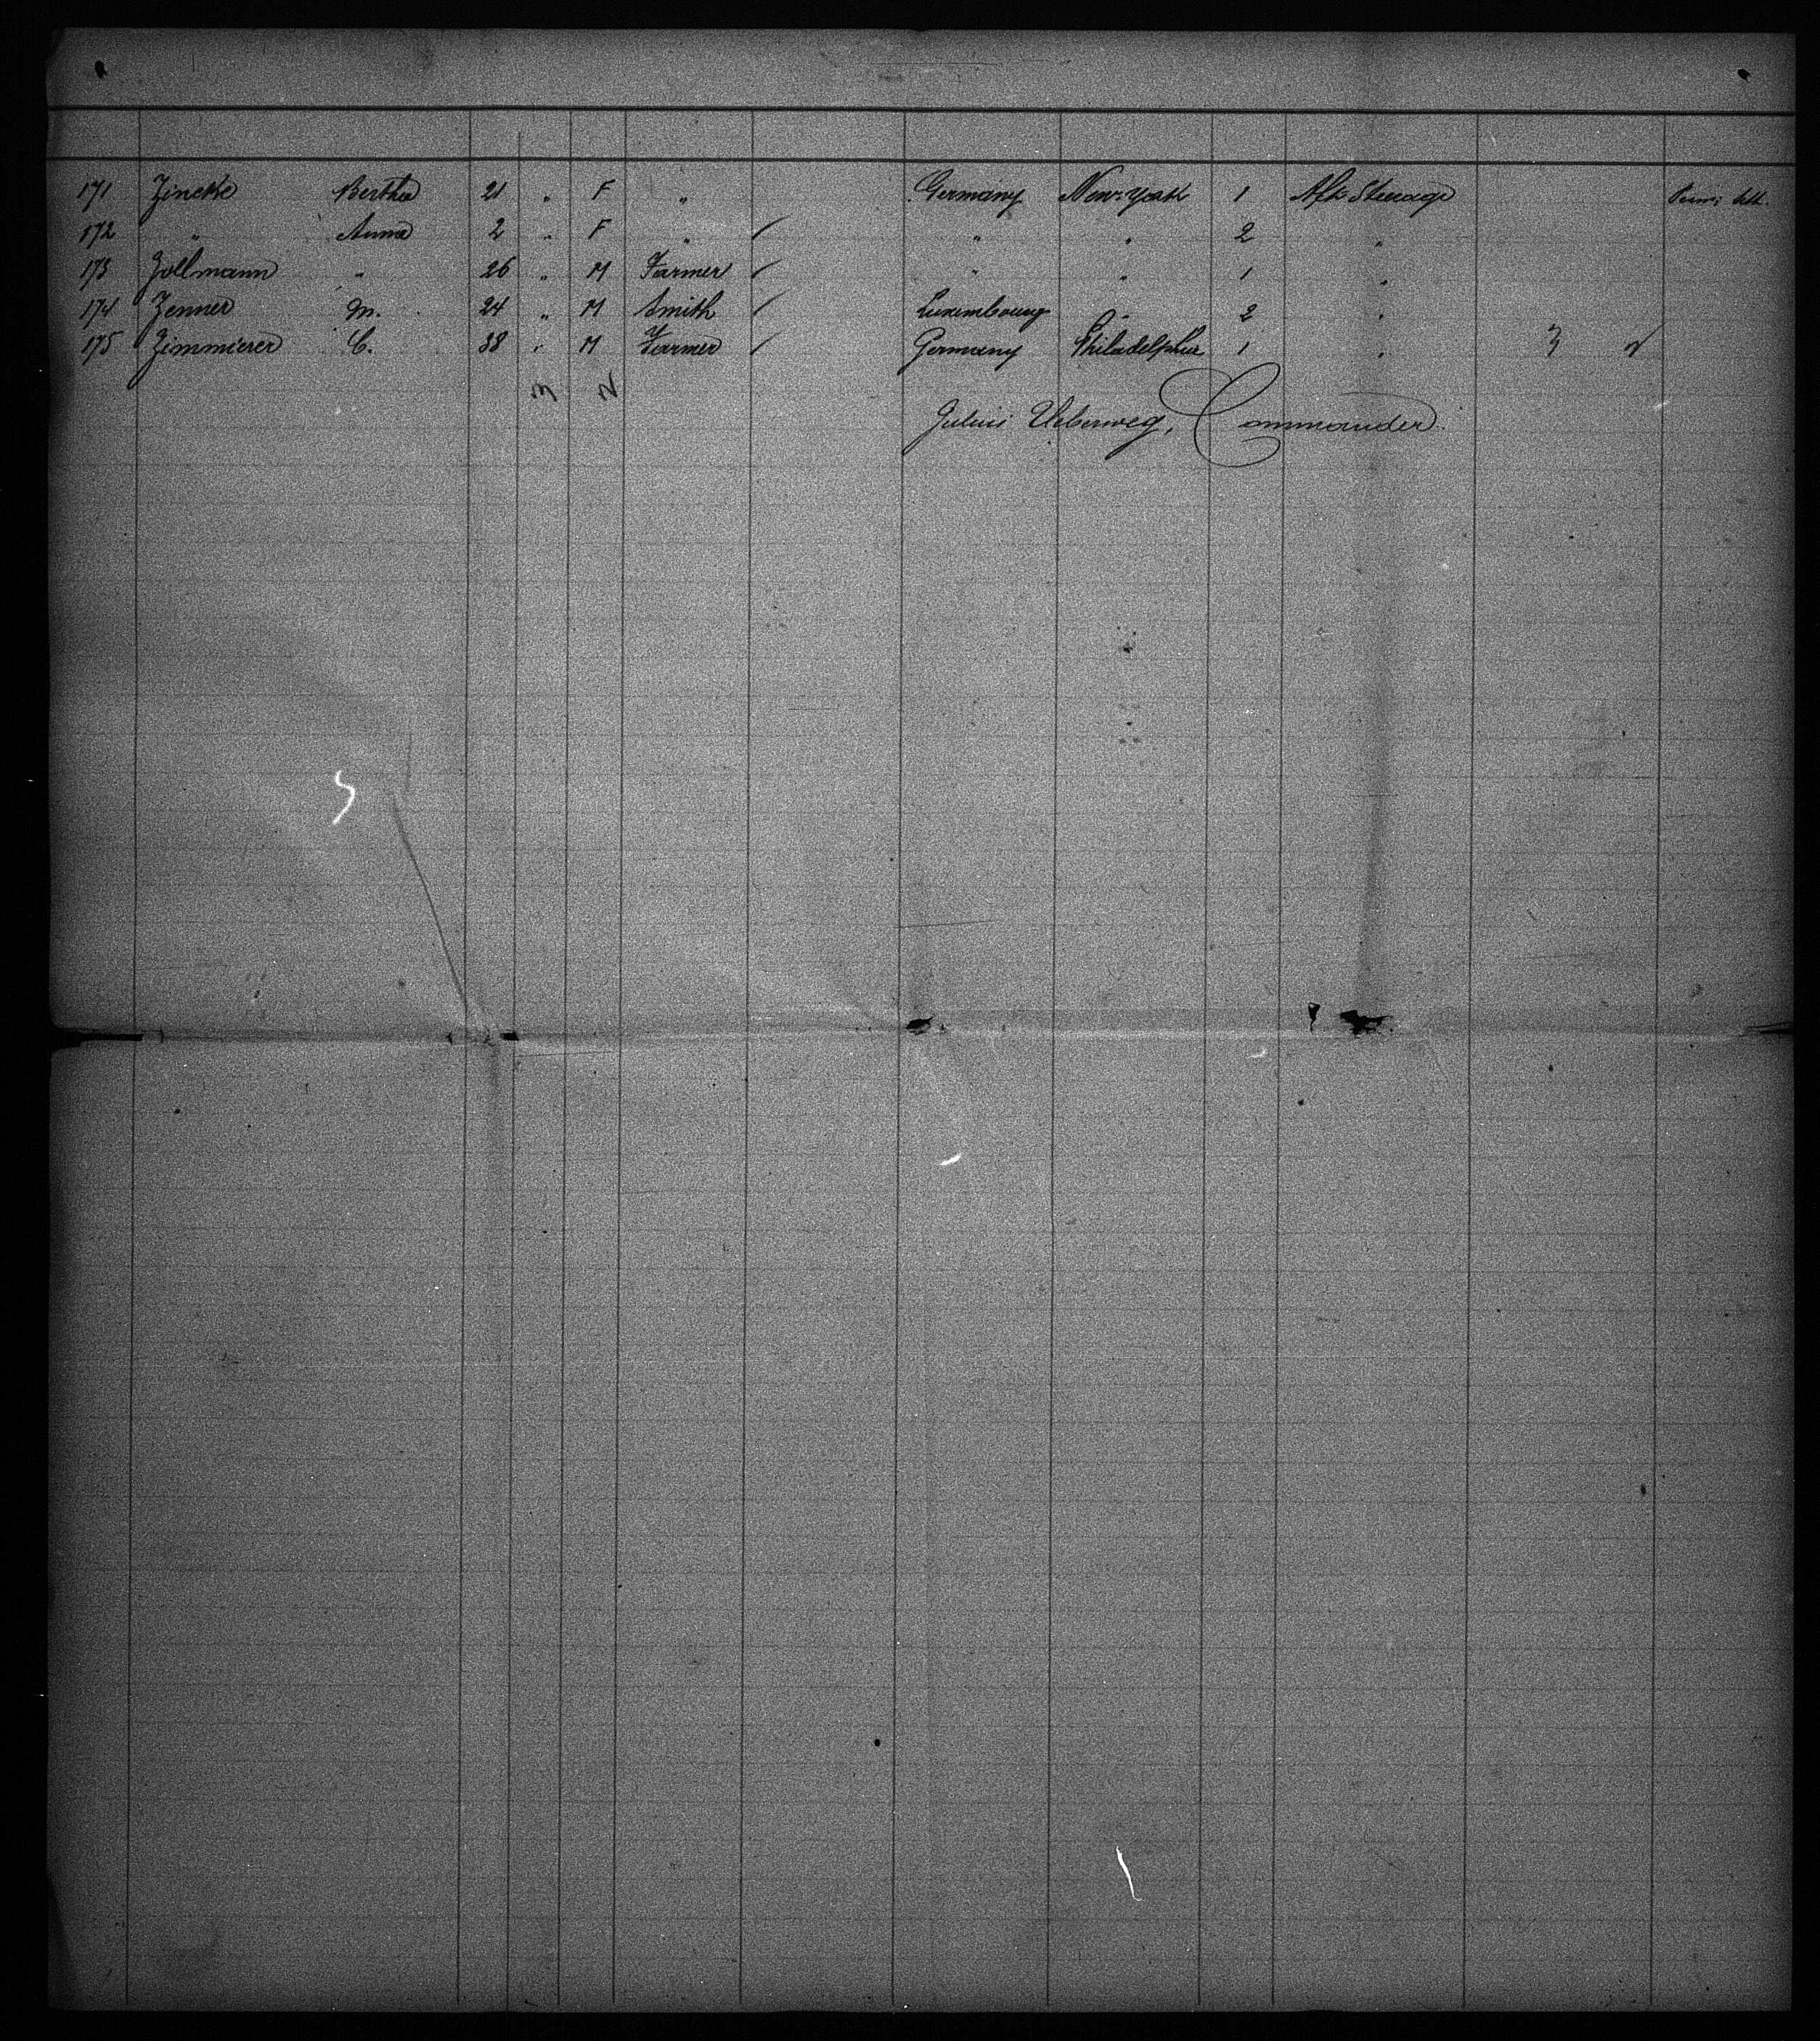 171 Zincke Bertha 21 " F " Germany New-York 1 Aft Steerage
172 " Anna 2 " F " / " " 2 "
173 Zollmann " 26 " M Farmer / " " 1 "
174 Zenner M. 24 " M Smith / Luxembourg " 2 "
175 Zimmierer C. 38 " M Farmer / Germany Philadelphia 1 " 3 2
3 2
Julius Ueberweg, Commander.